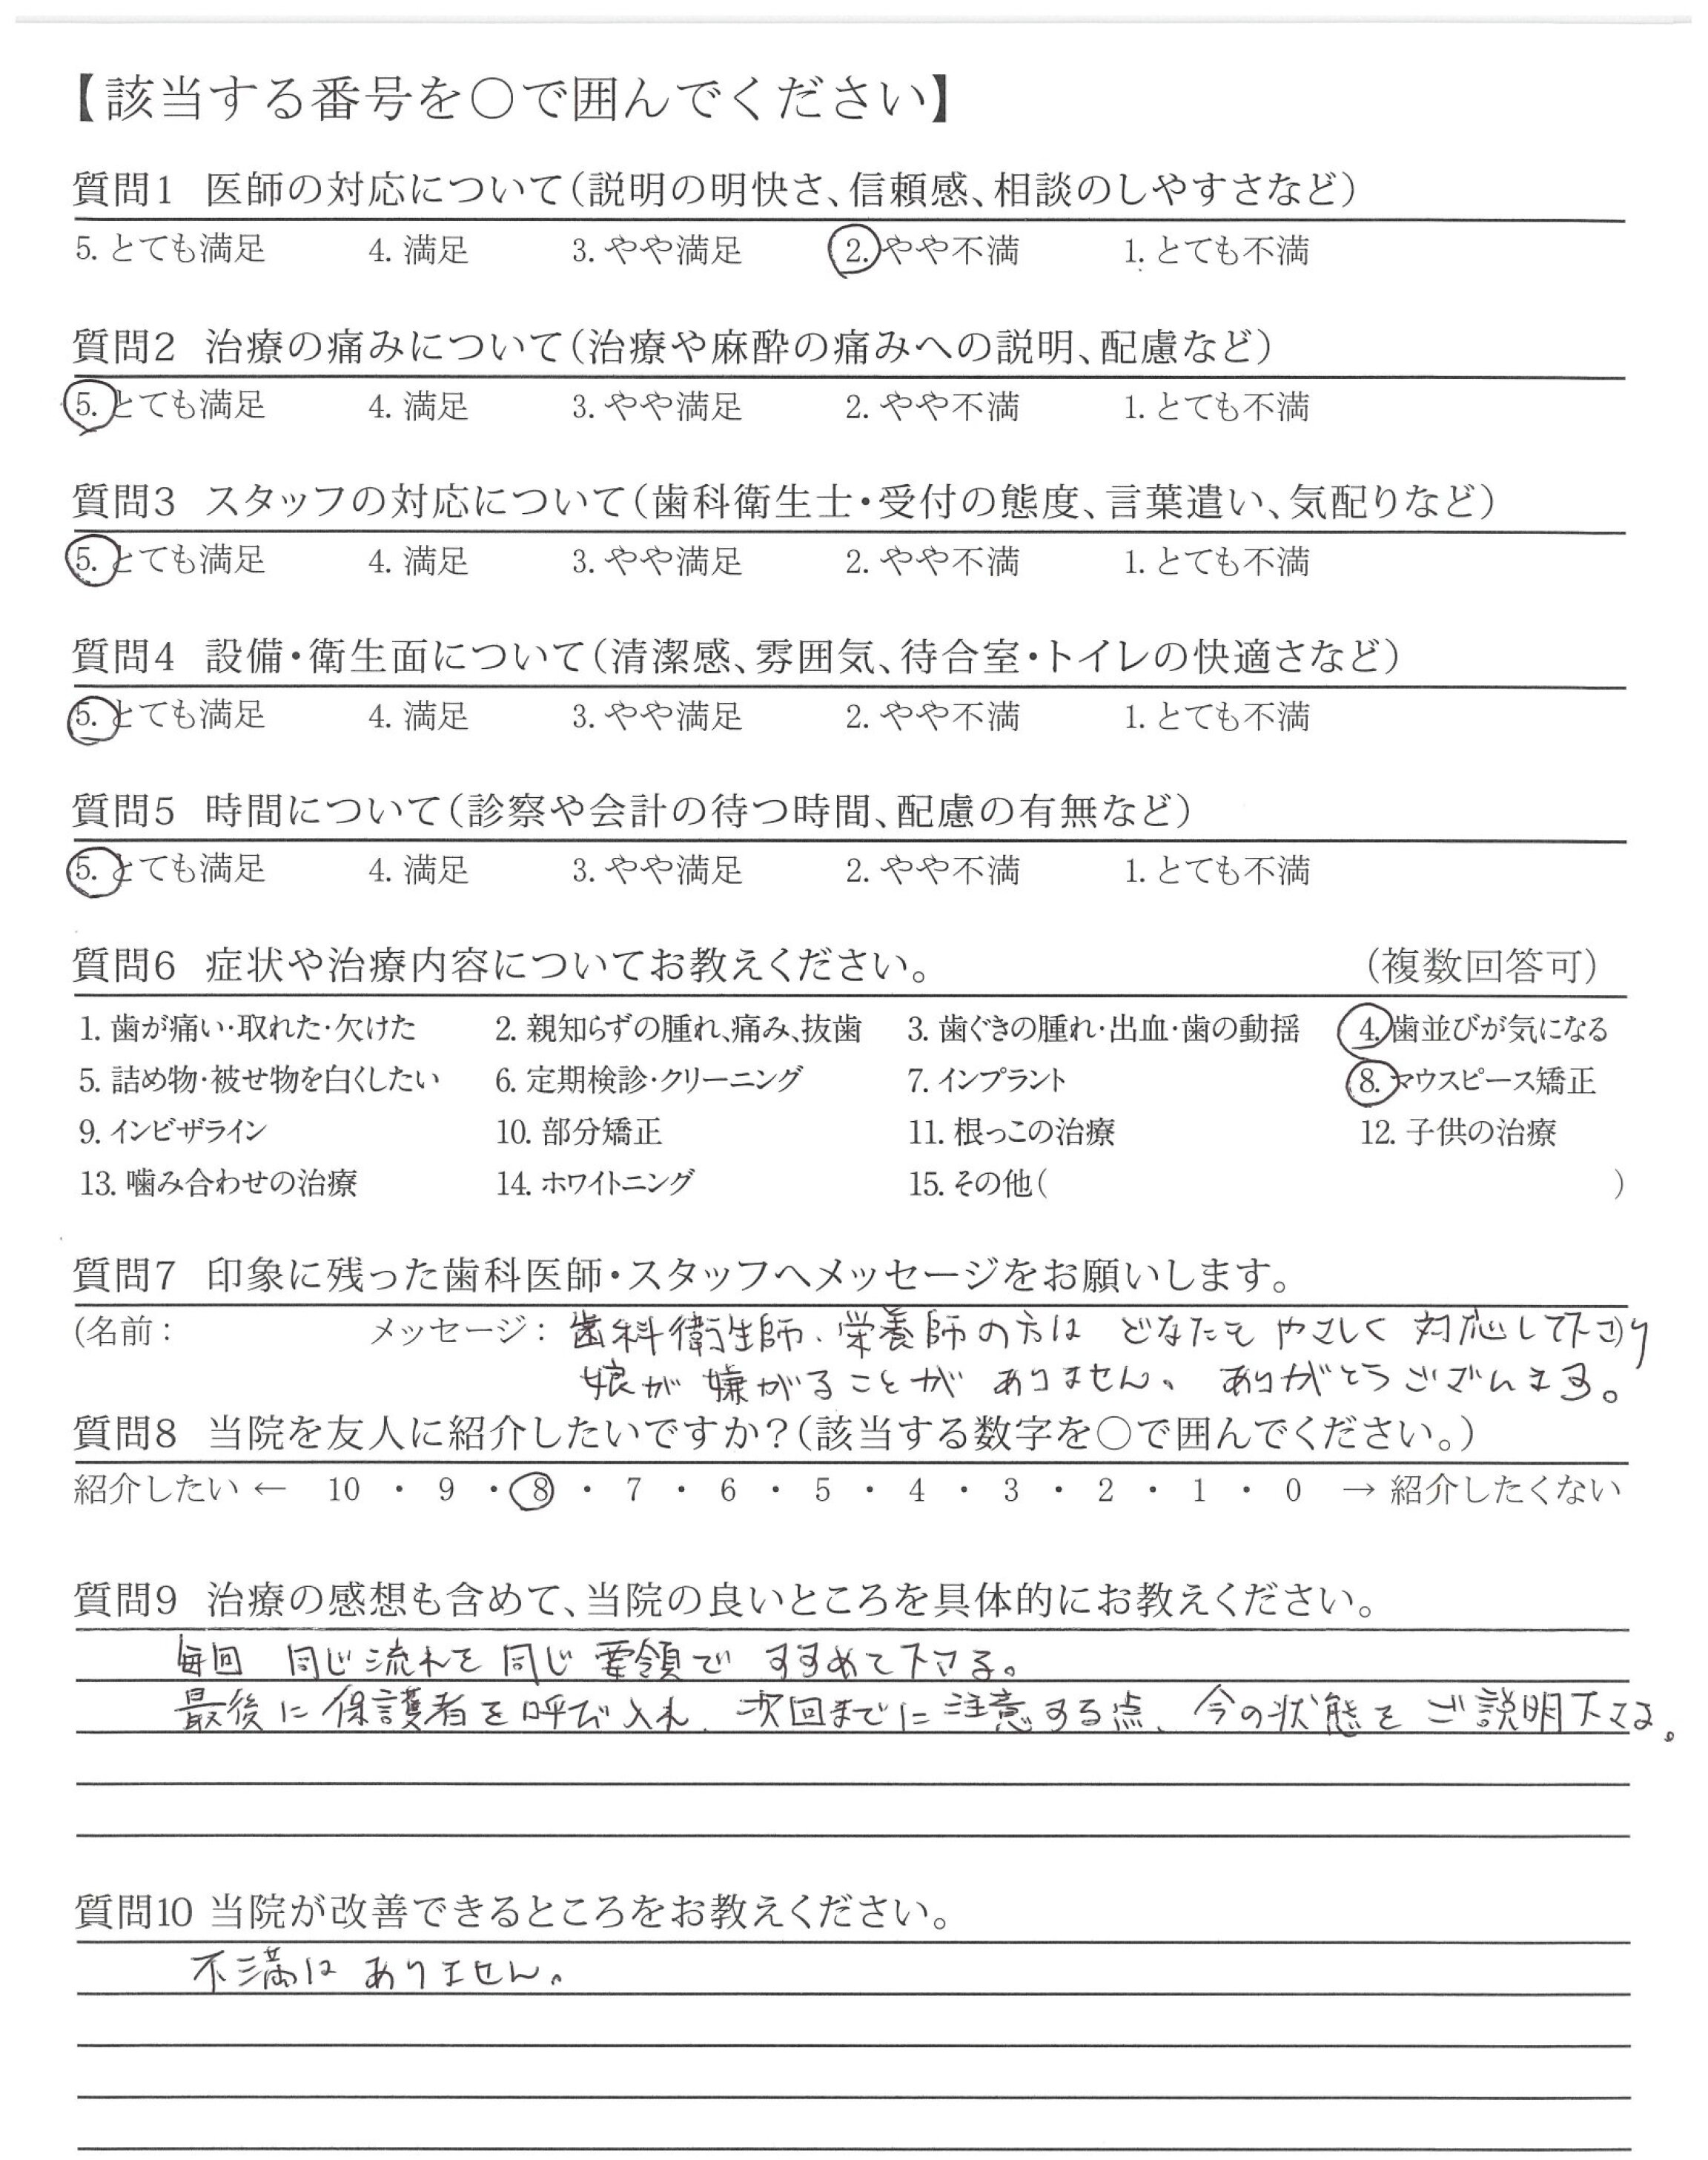 【該当する番号を○で囲んでください】
質問1 医師の対応について(説明の明快さ、信頼感、相談のしやすさなど)
5. とても満足 4. 満足 3. やや満足 2. やや不満 1. とても不満
質問2 治療の痛みについて(治療や麻酔の痛みへの説明、配慮など)
5. とても満足 4. 満足 3. やや満足 2. やや不満 1. とても不満
質問3 スタッフの対応について(歯科衛生士・受付の態度、言葉遣い、気配りなど)
5. とても満足 4. 満足 3. やや満足 2. やや不満 1. とても不満
質問4 設備・衛生面について(清潔感、雰囲気、待合室・トイレの快適さなど)
5. とても満足 4. 満足 3. やや満足 2. やや不満 1. とても不満
質問5 時間について(診察や会計の待つ時間、配慮の有無など)
5. とても満足 4. 満足 3. やや満足 2. やや不満 1. とても不満
質問6 症状や治療内容についてお教えください。 (複数回答可)
1. 歯が痛い・取れた・欠けた 2. 親知らずの腫れ、痛み、抜歯 3. 歯ぐきの腫れ・出血・歯の動揺 4. 歯並びが気になる
5. 詰め物・被せ物を白くしたい 6. 定期検診・クリーニング 7. インプラント 8. マウスピース矯正
9. インビザライン 10. 部分矯正 11. 根っこの治療 12. 子供の治療
13. 噛み合わせの治療 14. ホワイトニング 15. その他( )
質問7 印象に残った歯科医師・スタッフへメッセージをお願いします。
(名前: メッセージ: 歯科衛生師、栄養師の方は どなたも やさしく 対応して下さり
娘が 嫌がることが ありません。 ありがとうございます。
質問8 当院を友人に紹介したいですか?(該当する数字を○で囲んでください。)
紹介したい ← 10 ・ 9 ・ 8 ・ 7 ・ 6 ・ 5 ・ 4 ・ 3 ・ 2 ・ 1 ・ 0 → 紹介したくない
質問9 治療の感想も含めて、当院の良いところを具体的にお教えください。
毎回 同じ流れを 同じ 要領で すすめて下さる。
最後に 保護者を呼び入れ、次回までに 注意する点、今の状態を ご説明下さる。
質問10 当院が改善できるところをお教えください。
不満は ありません。